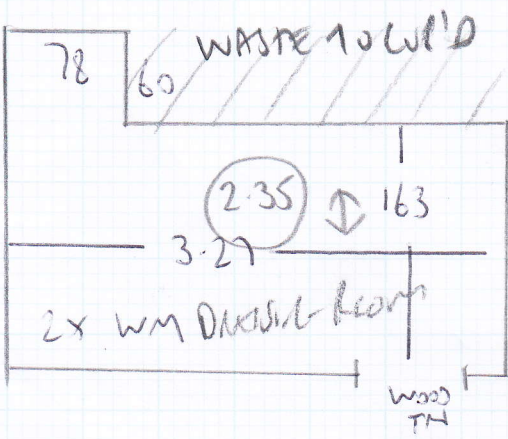 WASTE TO CUP'D
78
60
2.35
163
3.27
2x WM DRESSING ROOM
WOOD
TN